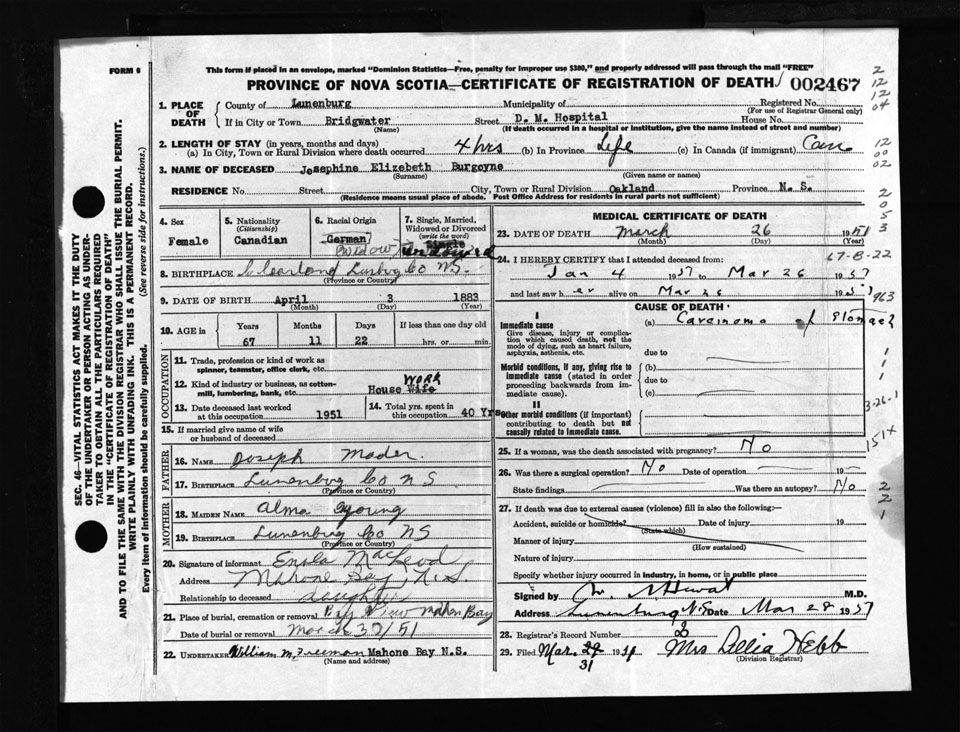 FORM 6
This form if placed in an envelope, marked "Dominion Statistics—Free, penalty for improper use $300," and properly addressed will pass through the mail "FREE"
PROVINCE OF NOVA SCOTIA—CERTIFICATE OF REGISTRATION OF DEATH 002467
1. PLACE OF DEATH
County of Lunenburg Municipality of Registered No.
(For use of Registrar General only)
If in City or Town Bridgwater Street D. M. Hospital House No.
(Name) (If death occurred in a hospital or institution, give the name instead of street and number)
2. LENGTH OF STAY (in years, months and days)
(a) In City, Town or Rural Division where death occurred 4 hrs (b) In Province Life (c) In Canada (if immigrant)
3. NAME OF DECEASED Josephine Elizebeth Burgoyne
(Surname) (Given name or names)
RESIDENCE No. Street City, Town or Rural Division Oakland Province N. S.
(Residence means usual place of abode. Post Office Address for residents in rural parts not sufficient)
4. Sex
Female
5. Nationality
(Citizenship)
Canadian
6. Racial Origin
German
Widow
7. Single, Married, Widowed or Divorced
(write the word)
Single
8. BIRTHPLACE Co N.S.
(Province or Country)
9. DATE OF BIRTH April 3 1883
(Month) (Day) (Year)
10. AGE in Years Months Days If less than one day old
67 11 22 hrs. or min.
OCCUPATION
11. Trade, profession or kind of work as spinner, teamster, office clerk, etc.
12. Kind of industry or business, as cotton-mill, lumbering, bank, etc. House Wife WORK
13. Date deceased last worked at this occupation 1951
14. Total yrs. spent in this occupation 40 Yrs.
15. If married give name of wife or husband of deceased
FATHER
16. NAME Joseph Mader
17. BIRTHPLACE Lunenburg Co N S
(Province or Country)
MOTHER
18. MAIDEN NAME Alma Young
19. BIRTHPLACE Lunenburg Co NS
(Province or Country)
20. Signature of informant Enola MacLeod
Address Mahone Bay, N.S.
Relationship to deceased daughter
21. Place of burial, cremation or removal Bay View Mahon Bay
Date of burial or removal March 30/51
22. UNDERTAKER William M. Freeman Mahone Bay N.S.
(Name and address)
MEDICAL CERTIFICATE OF DEATH
23. DATE OF DEATH March 26 1951
(Month) (Day) (Year)
67-8-22
24. I HEREBY CERTIFY that I attended deceased from:
Jan 4 1951 to Mar 26 1951
and last saw h er alive on Mar 26 1951
CAUSE OF DEATH
I
Immediate cause (a) Carcinoma of Stomach
Give disease, injury or complication which caused death, not the mode of dying, such as heart failure, asphyxia, asthenia, etc.
due to
Morbid conditions, if any, giving rise to immediate cause (stated in order proceeding backwards from immediate cause).
(b)
due to
(c)
II
Other morbid conditions (if important) contributing to death but not causally related to immediate cause.
25. If a woman, was the death associated with pregnancy? No
26. Was there a surgical operation? No Date of operation 19
State findings Was there an autopsy? No
27. If death was due to external causes (violence) fill in also the following:—
Accident, suicide or homicide? Date of injury 19
(State which)
Manner of injury
(How sustained)
Nature of injury
Specify whether injury occurred in industry, in home, or in public place
Signed by M.D.
Address Lunenburg N.S. Date Mar 28 1951
28. Registrar's Record Number
29. Filed Mar. 31 1951 Mrs Dellia Hebb
(Division Registrar)
SEC. 46—VITAL STATISTICS ACT MAKES IT THE DUTY OF THE UNDERTAKER OR PERSON ACTING AS UNDERTAKER TO OBTAIN ALL THE PARTICULARS REQUIRED IN THE "CERTIFICATE OF REGISTRATION OF DEATH" AND TO FILE THE SAME WITH THE DIVISION REGISTRAR WHO SHALL ISSUE THE BURIAL PERMIT.
WRITE PLAINLY WITH UNFADING INK. THIS IS A PERMANENT RECORD.
Every item of information should be carefully supplied. (See reverse side for instructions.)
2
12
12
04
12
00
02
2
0
5
3
963
1
1
1
3-26-1
151X
2
2
1